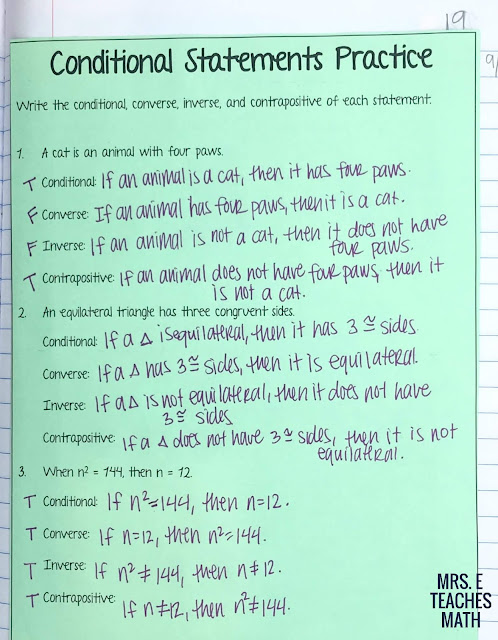 19
9/
Conditional Statements Practice
Write the conditional, converse, inverse, and contrapositive of each statement.
1. A cat is an animal with four paws.
T Conditional: If an animal is a cat, then it has four paws.
F Converse: If an animal has four paws, then it is a cat.
F Inverse: If an animal is not a cat, then it does not have
four paws.
T Contrapositive: If an animal does not have four paws, then it
is not a cat.
2. An equilateral triangle has three congruent sides.
Conditional: If a △ is equilateral, then it has 3 ≅ sides.
Converse: If a △ has 3 ≅ sides, then it is equilateral.
Inverse: If a △ is not equilateral, then it does not have
3 ≅ sides
Contrapositive: If a △ does not have 3 ≅ sides, then it is not
equilateral.
3. When n² = 144, then n = 12.
T Conditional: If n²=144, then n=12.
T Converse: If n=12, then n²=144.
T Inverse: If n²≠144, then n≠12.
T Contrapositive: If n≠12, then n²≠144.
MRS. E
TEACHES
MATH